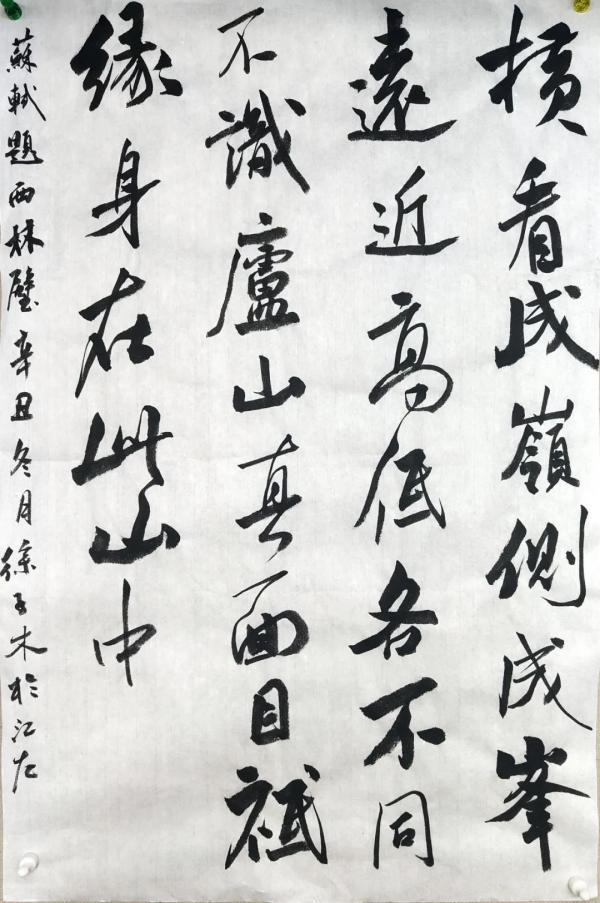 橫看成嶺側成峯
遠近高低各不同
不識廬山真面目祇
緣身在此山中
蘇軾題西林壁辛丑冬月徐子木於江左